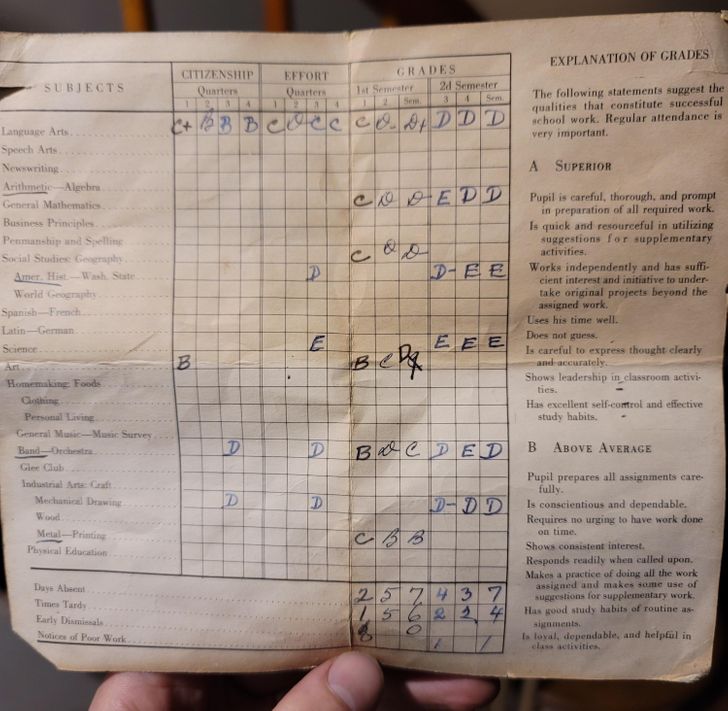 CITIZENSHIP EFFORT GRADES
SUBJECTS Quarters Quarters 1st Semester 2d Semester
1 2 3 4 1 2 3 4 1 2 Sem. 3 4 Sem.
Language Arts C+ B B B C D C C C D- D+ D D D
Speech Arts
Newswriting
Arithmetic—Algebra
General Mathematics C D D- E D D
Business Principles
Penmanship and Spelling
Social Studies: Geography C D D-
Amer. Hist.—Wash. State D D- E E
World Geography
Spanish—French
Latin—German
Science E E E E
Art B B C
Homemaking: Foods
Clothing
Personal Living
General Music—Music Survey
Band—Orchestra D D B D C D E D
Glee Club
Industrial Arts: Craft
Mechanical Drawing D D D- D D
Wood
Metal—Printing C B B
Physical Education
Days Absent 2 5 7 4 3 7
Times Tardy 1 5 6 2 2 4
Early Dismissals 0
Notices of Poor Work 1 1
EXPLANATION OF GRADES
The following statements suggest the
qualities that constitute successful
school work. Regular attendance is
very important.
A SUPERIOR
Pupil is careful, thorough, and prompt
in preparation of all required work.
Is quick and resourceful in utilizing
suggestions for supplementary
activities.
Works independently and has suffi-
cient interest and initiative to under-
take original projects beyond the
assigned work.
Uses his time well.
Does not guess.
Is careful to express thought clearly
and accurately.
Shows leadership in classroom activi-
ties.
Has excellent self-control and effective
study habits.
B ABOVE AVERAGE
Pupil prepares all assignments care-
fully.
Is conscientious and dependable.
Requires no urging to have work done
on time.
Shows consistent interest.
Responds readily when called upon.
Makes a practice of doing all the work
assigned and makes some use of
suggestions for supplementary work.
Has good study habits of routine as-
signments.
Is loyal, dependable, and helpful in
class activities.